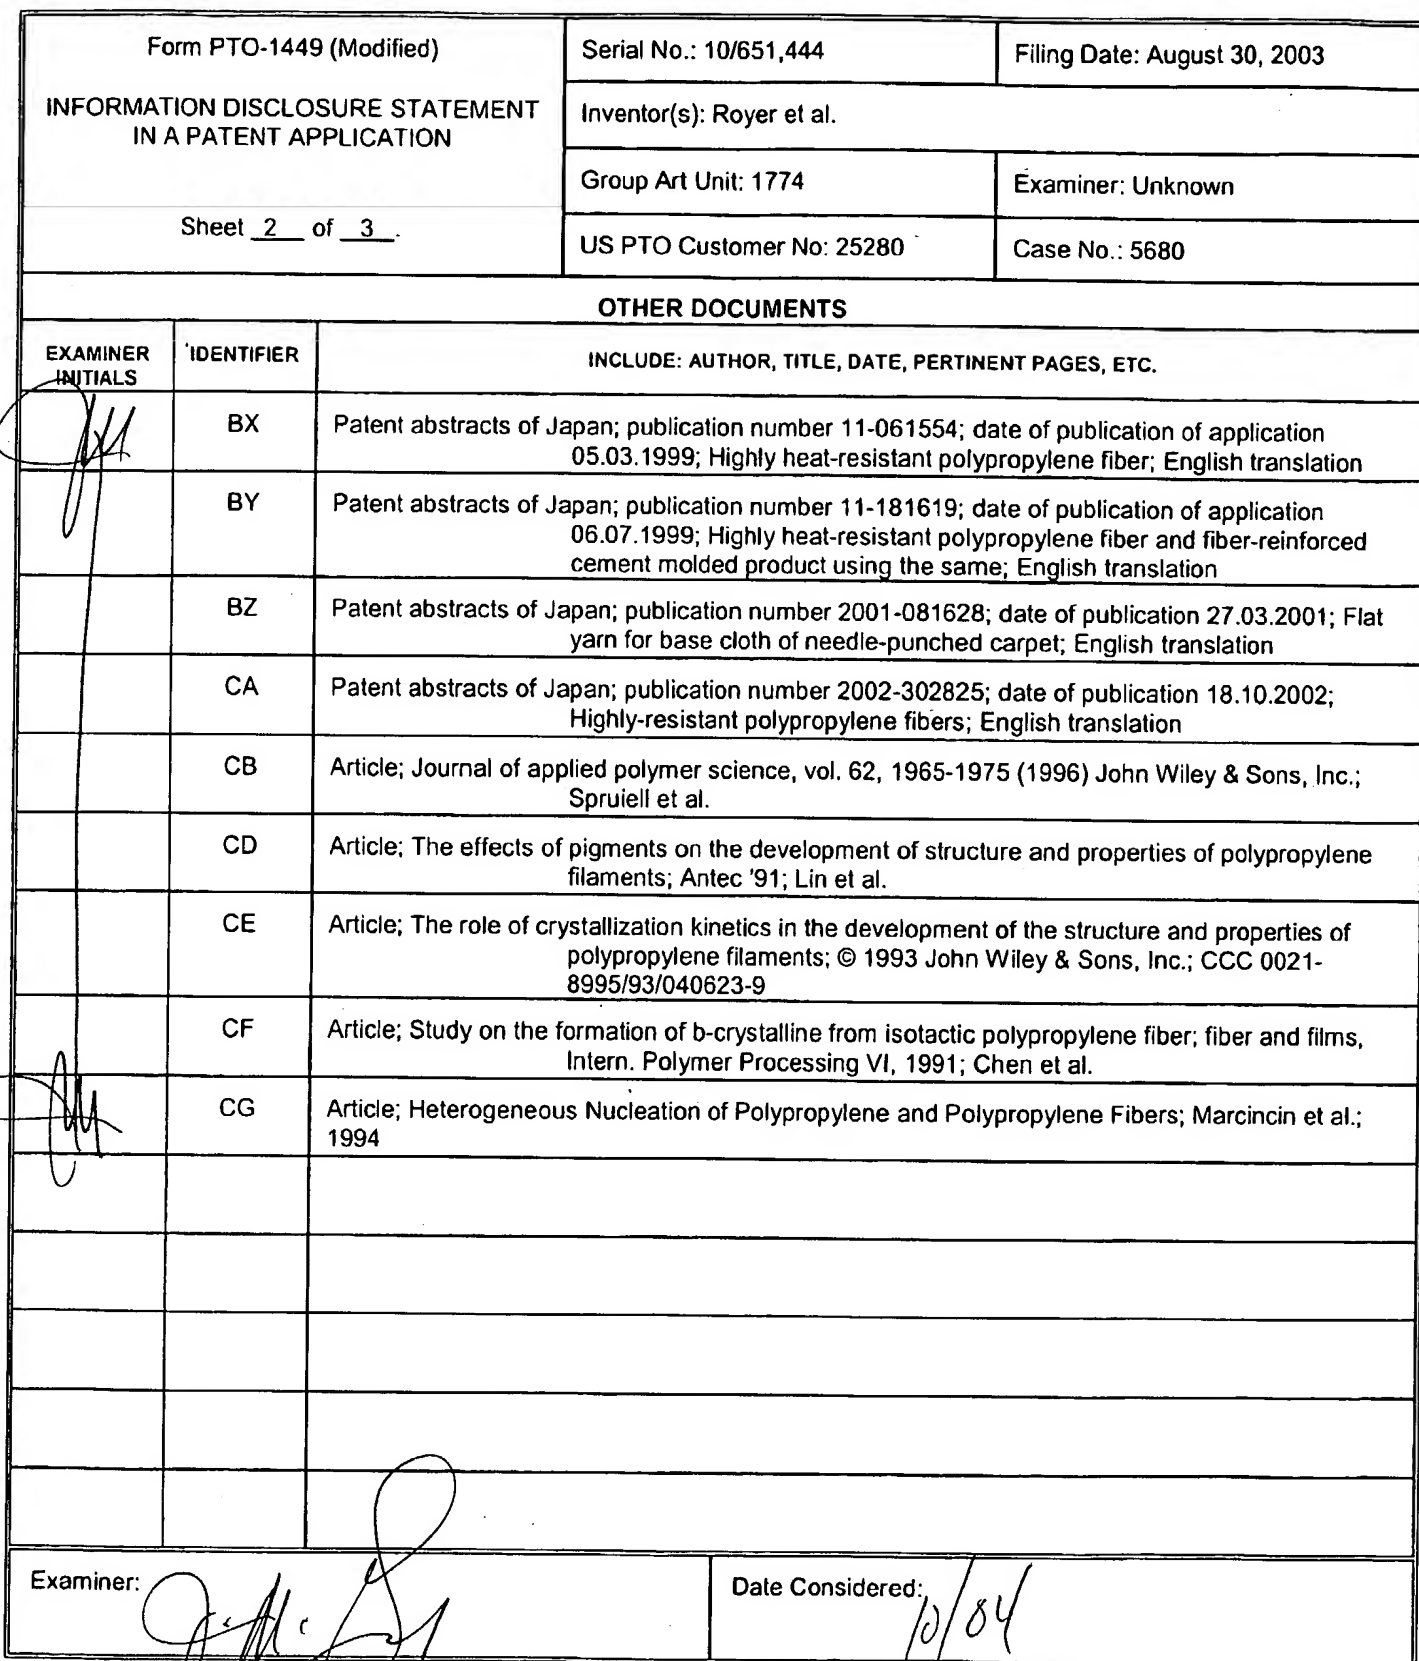 Form PTO-1449 (Modified)
INFORMATION DISCLOSURE STATEMENT
IN A PATENT APPLICATION
Sheet 2 of 3.
Serial No.: 10/651,444
Filing Date: August 30, 2003
Inventor(s): Royer et al.
Group Art Unit: 1774
Examiner: Unknown
US PTO Customer No: 25280
Case No.: 5680
OTHER DOCUMENTS
EXAMINER
INITIALS
IDENTIFIER
INCLUDE: AUTHOR, TITLE, DATE, PERTINENT PAGES, ETC.
BX
Patent abstracts of Japan; publication number 11-061554; date of publication of application
05.03.1999; Highly heat-resistant polypropylene fiber; English translation
BY
Patent abstracts of Japan; publication number 11-181619; date of publication of application
06.07.1999; Highly heat-resistant polypropylene fiber and fiber-reinforced
cement molded product using the same; English translation
BZ
Patent abstracts of Japan; publication number 2001-081628; date of publication 27.03.2001; Flat
yarn for base cloth of needle-punched carpet; English translation
CA
Patent abstracts of Japan; publication number 2002-302825; date of publication 18.10.2002;
Highly-resistant polypropylene fibers; English translation
CB
Article; Journal of applied polymer science, vol. 62, 1965-1975 (1996) John Wiley & Sons, Inc.;
Spruiell et al.
CD
Article; The effects of pigments on the development of structure and properties of polypropylene
filaments; Antec '91; Lin et al.
CE
Article; The role of crystallization kinetics in the development of the structure and properties of
polypropylene filaments; © 1993 John Wiley & Sons, Inc.; CCC 0021-
8995/93/040623-9
CF
Article; Study on the formation of b-crystalline from isotactic polypropylene fiber; fiber and films,
Intern. Polymer Processing VI, 1991; Chen et al.
CG
Article; Heterogeneous Nucleation of Polypropylene and Polypropylene Fibers; Marcincin et al.;
1994
Examiner:
Date Considered: 10/04